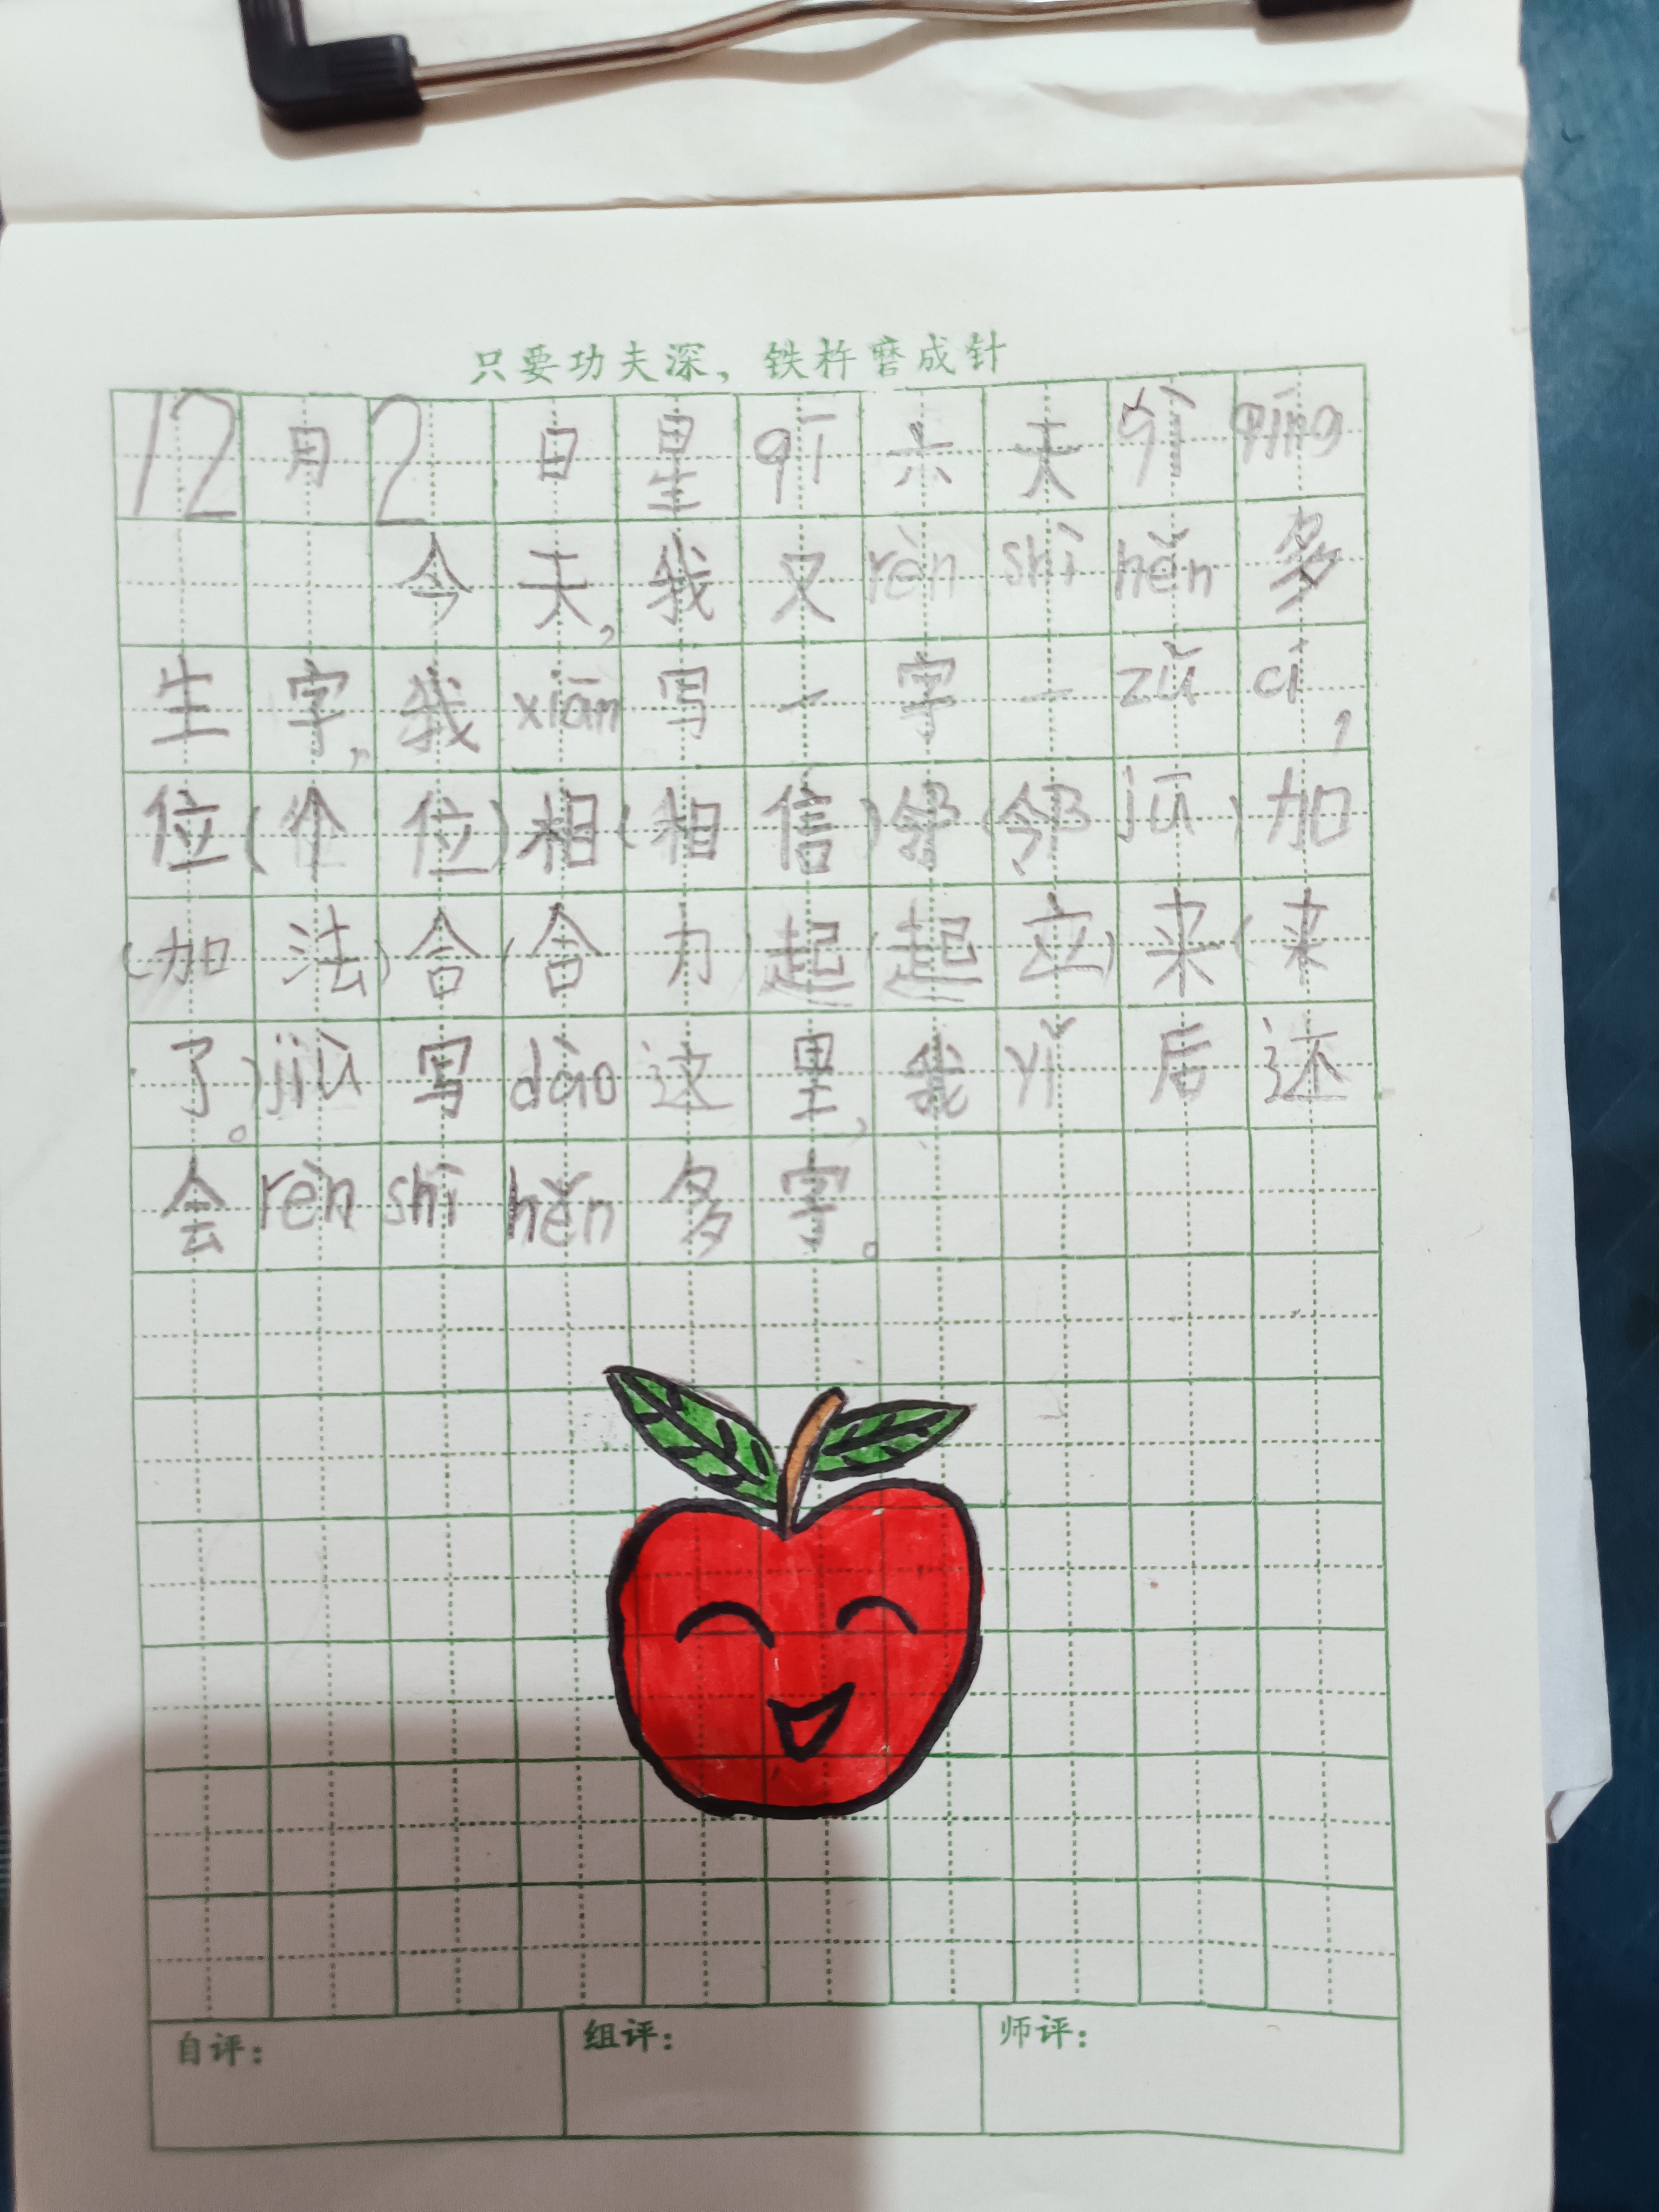 只要功夫深，铁杵磨成针
12月2日星qī六天qì qíng
今天，我又rèn shī hěn多
生字，我xiān写一字一zǔ cí，
位(个位)相(相信)邻(邻jū)加
(加法)合(合力)起(起立)来(来
了。)jiù写dào这里，我yǐ后还
会rèn shī hěn多字。
自评： 组评： 师评：